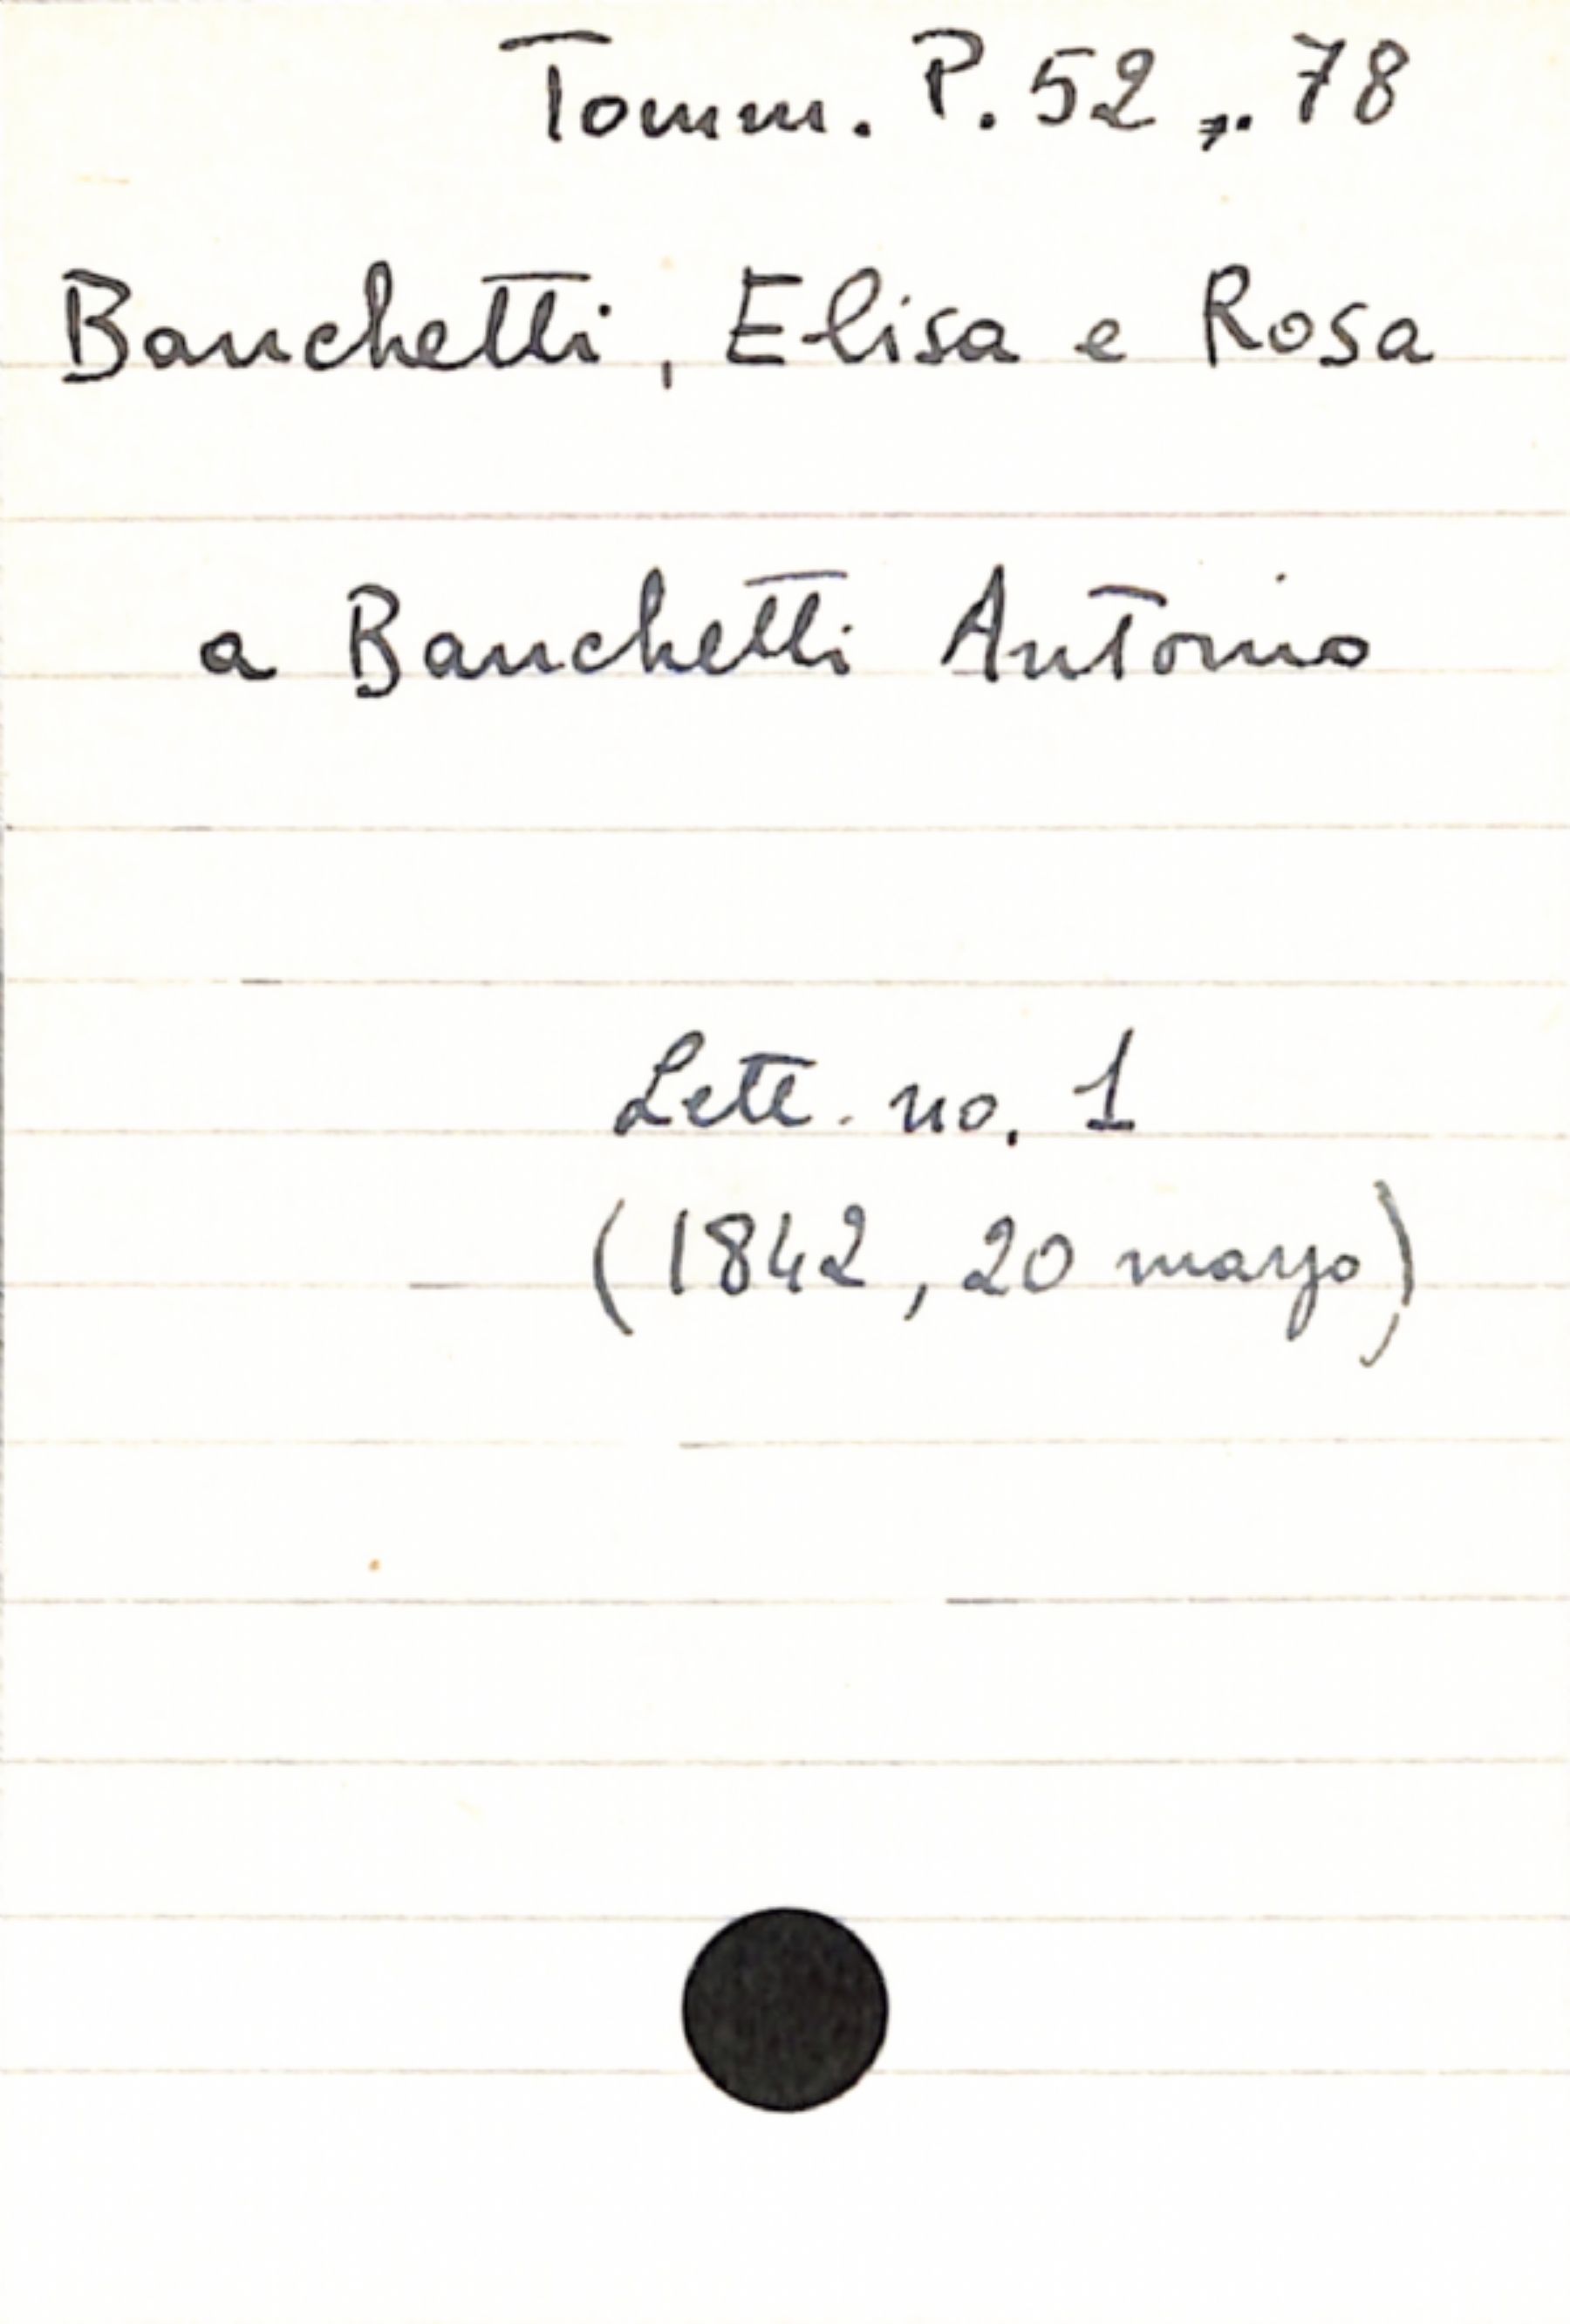 Tomm. P. 52,. 78
Banchetti, Elisa e Rosa
a Banchetti Antonio
Lett. no. 1
(1842, 20 marzo)